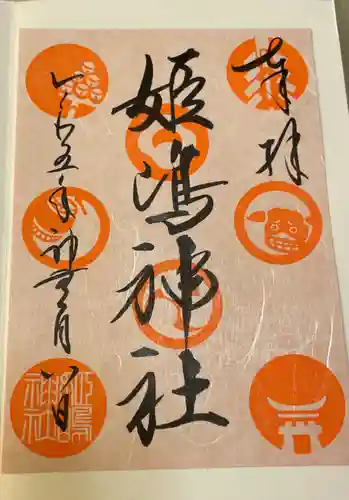 奉拝
姫嶋神社
令和五年神無月八日
姫嶋神社